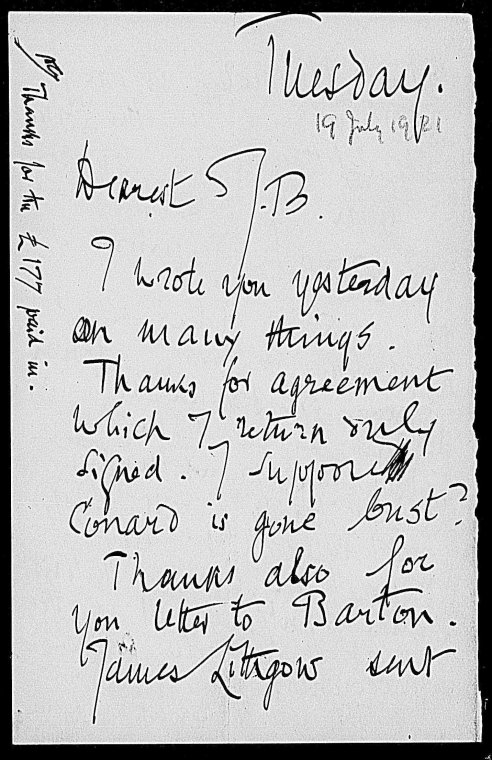 Tuesday.
19 July 1921
Dearest J.B.
I wrote you yesterday
on many things.
Thanks for agreement
which I return duly
signed. I suppose
Conard is gone bust?
Thanks also for
you letter to Barton.
James Lithgow sent
PS Thanks for the £177 paid in.